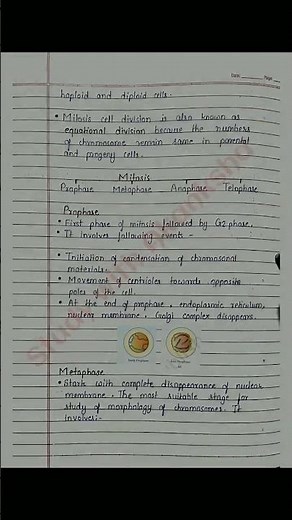 Date Page
haploid and diploid cells.
• Mitosis cell division is also known as
equational division because the numbers
of chromosome remain same in parental
and progeny cells.
Mitosis
Prophase Metaphase Anaphase Telophase
Prophase
• First phase of mitosis followed by G2 phase.
• It involves following events -
• Initiation of condensation of chromosomal
materials.
• Movement of centrioles towards opposite
poles of the cell.
• At the end of prophase, endoplasmic reticulum,
nuclear membrane, Golgi complex disappears.
Early Prophase Late Prophase
Metaphase
• Starts with complete disappearance of nuclear
membrane. The most suitable stage for
study of morphology of chromosomes. It
involves:-